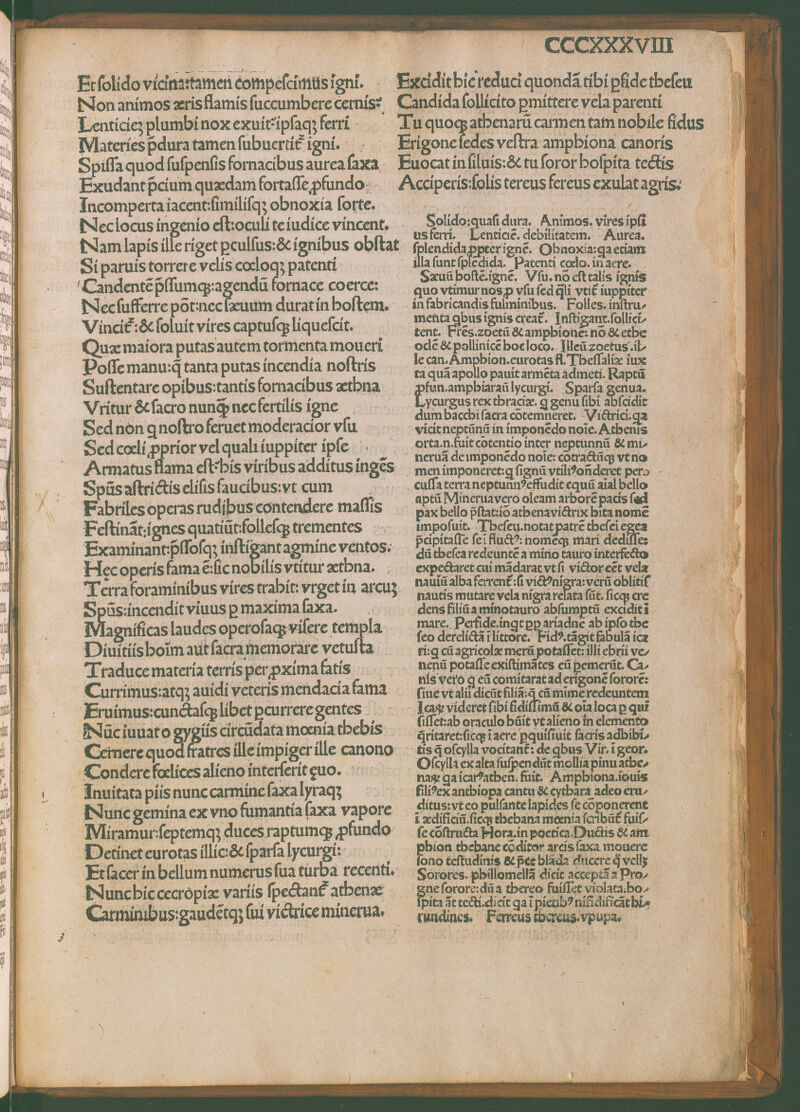 CCCXXXVIII
Et solido vicina:tamen compescimus igni.
Non animos æris flamis succumbere cernis?
Lenticieq; plumbi nox exuit:ipsaq; ferri
Materies p̄dura tamen subuertit᷑ igni.
Spissa quod suspensis fornacibus aurea saxa
Exudant p̄cium quædam fortasse ꝓfundo.
Incomperta iacent:similisq; obnoxia sorte.
Nec locus ingenio est:oculi te iudice vincent.
Nam lapis ille riget pculsus:& ignibus obstat
Si paruis torrere velis cœloq; patenti
Candentē p̄ssumq;:agendū fornace coerce:
Nec sufferre pōt:nec sæuum durat in hostem.
Vincit᷑:& soluit vires captusq; liquescit.
Quæ maiora putas autem tormenta moueri
Posse manu:q̄ tanta putas incendia nostris
Sustentare opibus:tantis fornacibus ætbna
Vritur & sacro nunq̄ nec fertilis igne
Sed non q nostro feruet moderacior vsu
Sed cœli ꝓprior vel quali iuppiter ipse
Armatus flama est:his viribus additus ingēs
Spūs astrictis elisis faucibus:vt cum
Fabriles operas rudibus contendere massis
Festināt:ignes quatiūt:follesq; trementes
Examinant:p̄ssosq; instigant agmine ventos.
Hec operis fama ē:sic nobilis vtitur ætbna.
Terra foraminibus vires trahit: vrget in arcuꝫ
Spūs:incendit viuus p maxima saxa.
Magnificas laudes operosaq; visere templa
Diuitiis hoīm aut sacra memorare vetusta
Traduce materia terris per ꝓxima fatis
Currimus:atq; auidi veteris mendacia fama
Eruimus:cunctasq; libet pcurrere gentes
Nūc iuuat o gygiis circūdata mœnia thebis
Cernere quod fratres ille impiger ille canono
Condere fœlices alieno interserit ęuo.
Inuitata piis nunc carmine saxa lyraq;
Nunc gemina ex vno fumantia saxa vapore
Miramur:septemq; duces raptumq; ꝓfundo
Detinet eurotas illic:& sparsa lycurgi:
Et sacer in bellum numerus sua turba recenti.
Nunc hic cecropiæ variis spectant᷑ athenæ
Carminibus:gaudētq; sui victrice minerua.
Excidit hic reduci quondā tibi pfide theseu
Candida sollicito pmittere vela parenti
Tu quoq; athenarū carmen tam nobile sidus
Erigone sedes vestra amphiona canoris
Euocat in siluis:& tu soror hospita tectis
Acciperis:solis tereus fereus exulat agris.
Solido:quasi dura. Animos. vires ipsi
us ferri. Lenticiē. debilitatem. Aurea.
splendida ꝓpter ignē. Obnoxia:qa etiam
illa sunt splēdida. Patenti cœlo. in aere.
Sæuū hostē.ignē. Vsu. nō est talis ignis
quo vtimur nos ꝓ vsu sed q̄li vtit᷑ iuppiter
in fabricandis fulminibus. Folles. instru-
menta qbus ignis creat᷑. Instigant.sollici-
tent. Frēs.zoetū & amphionē: nō & etbe
odē & pollinicē hoc loco. Illeū zoetus .il-
le can. Amphion.eurotas fl. Thessaliæ iux
ta quā apollo pauit armēta admeti. Raptū
ꝓfun.amphiaraū lycurgi. Sparsa genua.
Lycurgus rex thraciæ. q genu sibi abscidit
dum bacchi sacra cōtemneret. Victrici.qa
vicit neptūnū in imponēdo noīe. Athenis
orta.n.fuit cōtentio inter neptunnū & mi-
neruā de imponēdo noīe: cōtractūq; vt no
men imponeret:q signū vtilius oñderet pero
cussa terra neptunnus effudit equū aīal bello
aptū Minerua vero oleam arborē pacis sed
pax bello p̄stat:iō athena victrix hita nomē
imposuit. Theseu.notat patrē thesei egea
p̄cipitasse sei fluctus: nomēq; mari dedisse:
dū thesea redeuntē a mino tauro interfecto
expectaret cui mādarat vt si victor eēt vela
nauiū alba ferrent᷑:si victus nigra:verū oblitis
nautis mutare vela nigra relata sūt. sicq; cre
dens filiū a minotauro absumptū excidit ī
mare. Perfide.inqt pp ariadnē ab ipso the
seo derelictā ī littore. Fidus.tāgit fabulā ica
ri:q cū agricolæ merū potasset: illi ebrii ve-
nenū potasse existimātes eū pemerūt. Ca-
nis vero q eū comitarat ad erigonē sororē:
siue vt alii dicūt filiā:q cū mime redeuntem
Icaꝝ videret sibi fidissimū & oīa loca p qui
sisset:ab oraculo hūit vt alieno in elemento
q̄ritaret:sicq; ī aere pquisiuit sacris adhibi-
tis q̄ oscylla vocitant᷑: de qbus Vir. ī geor.
Oscylla ex alta suspendūt mollia pinu athe-
naꝝ qa icarus athen. fuit. Amphiona.iouis
filius ex anthiopa cantu & cythara adeo eru-
ditus:vt eo pulsante lapides se cōponerent
ī ædificiū.sicq; thebana mœnia scribūt᷑ fuis-
se cōstructa Hora.in poetica.Ductis & am
phion thebane cōditor arcis saxa mouere
sono testudinis & p̄ce blāda ducere q̄ velly
Sorores. philomellā dicit acceptā a Pro-
gne sorore:dū a thereo fuisset violata.ho-
spita āt tecti.dicit qa ī pietibus nisi dificāt hi-
rundines. Ferreus thereus.vpupa.